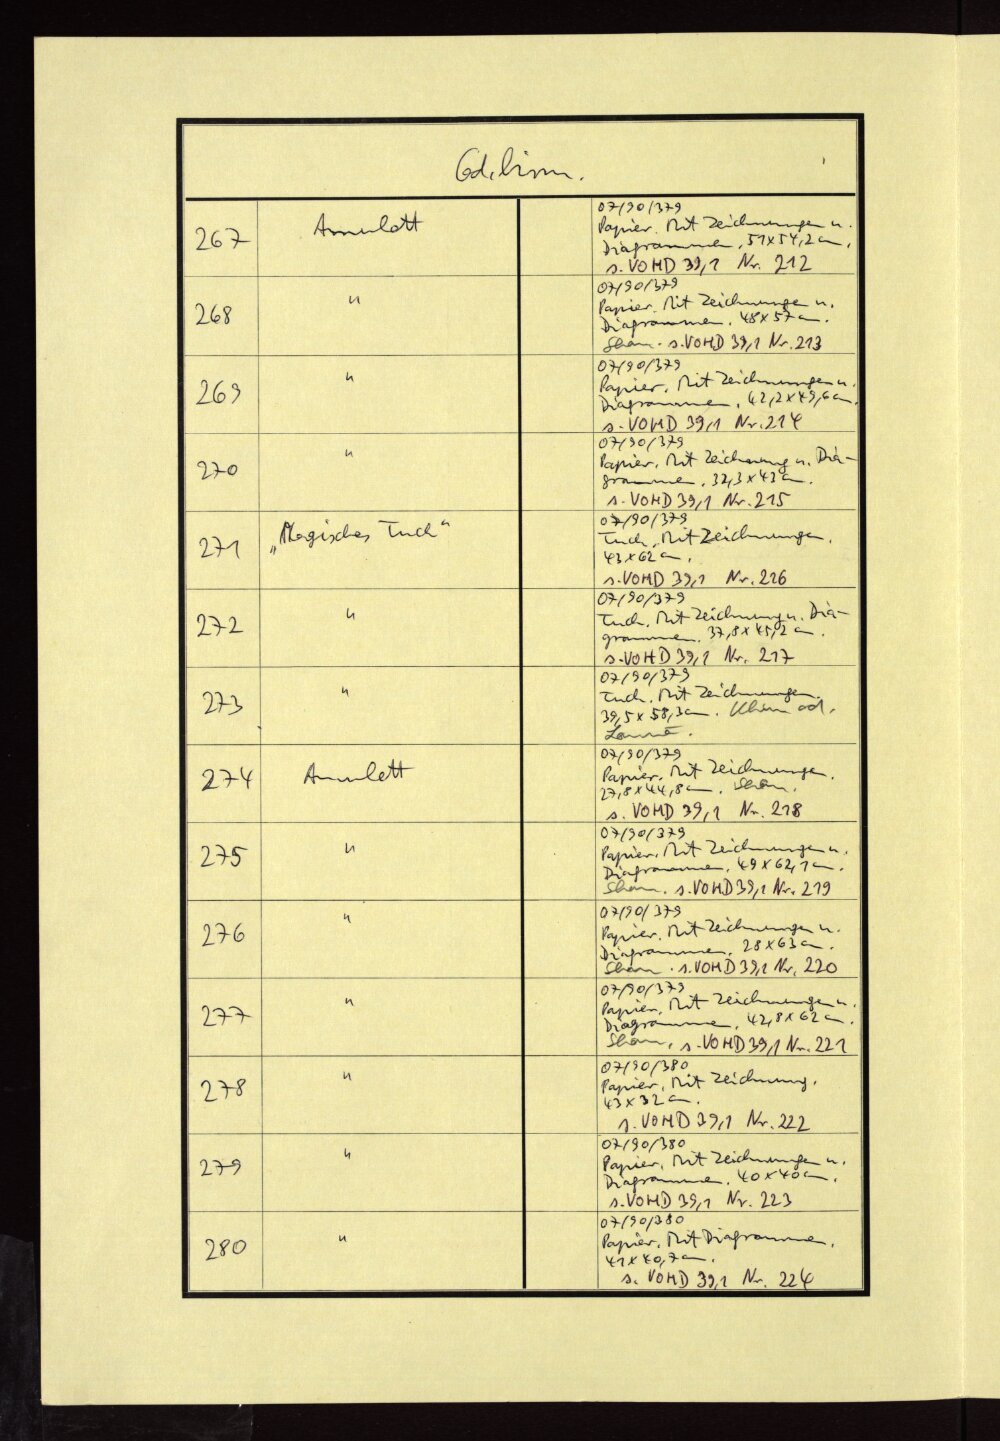 Cod. birm.
267 Amulett 07/90/379
Papier. Mit Zeichnungen u.
Diagrammen, 51x54,2 cm.
s. VOHD 39,1 Nr. 212
268 " 07/90/379
Papier. Mit Zeichnungen u.
Diagrammen. 48x57 cm.
Shan. s. VOHD 39,1 Nr. 213
269 " 07/90/379
Papier. Mit Zeichnungen u.
Diagrammen. 42,2x49,6 cm.
s. VOHD 39,1 Nr. 214
270 " 07/90/379
Papier. Mit Zeichnung u. Dia-
grammen. 32,3x43 cm.
s. VOHD 39,1 Nr. 215
271 „Magisches Tuch“ 07/90/379
Tuch. Mit Zeichnungen.
43x62 cm.
s. VOHD 39,1 Nr. 216
272 " 07/90/379
Tuch. Mit Zeichnung u. Dia-
grammen. 37,8x45,2 cm.
s. VOHD 39,1 Nr. 217
273 " 07/90/379
Tuch. Mit Zeichnungen.
39,5x58,3 cm. Khün od.
274 Amulett 07/90/379
Papier. Mit Zeichnungen.
27,8x44,8 cm. Shan.
s. VOHD 39,1 Nr. 218
275 " 07/90/379
Papier. Mit Zeichnungen u.
Diagrammen. 49x62,1 cm.
Shan. s. VOHD 39,1 Nr. 219
276 " 07/90/379
Papier. Mit Zeichnungen u.
Diagrammen. 28x63 cm.
Shan. s. VOHD 39,1 Nr. 220
277 " 07/90/379
Papier. Mit Zeichnungen u.
Diagrammen. 42,8x62 cm.
Shan. s. VOHD 39,1 Nr. 221
278 " 07/90/380
Papier. Mit Zeichnung.
43x32 cm.
s. VOHD 39,1 Nr. 222
279 " 07/90/380
Papier. Mit Zeichnungen u.
Diagrammen. 40x40 cm.
s. VOHD 39,1 Nr. 223
280 " 07/90/380
Papier. Mit Diagrammen.
41x40,7 cm.
s. VOHD 39,1 Nr. 224